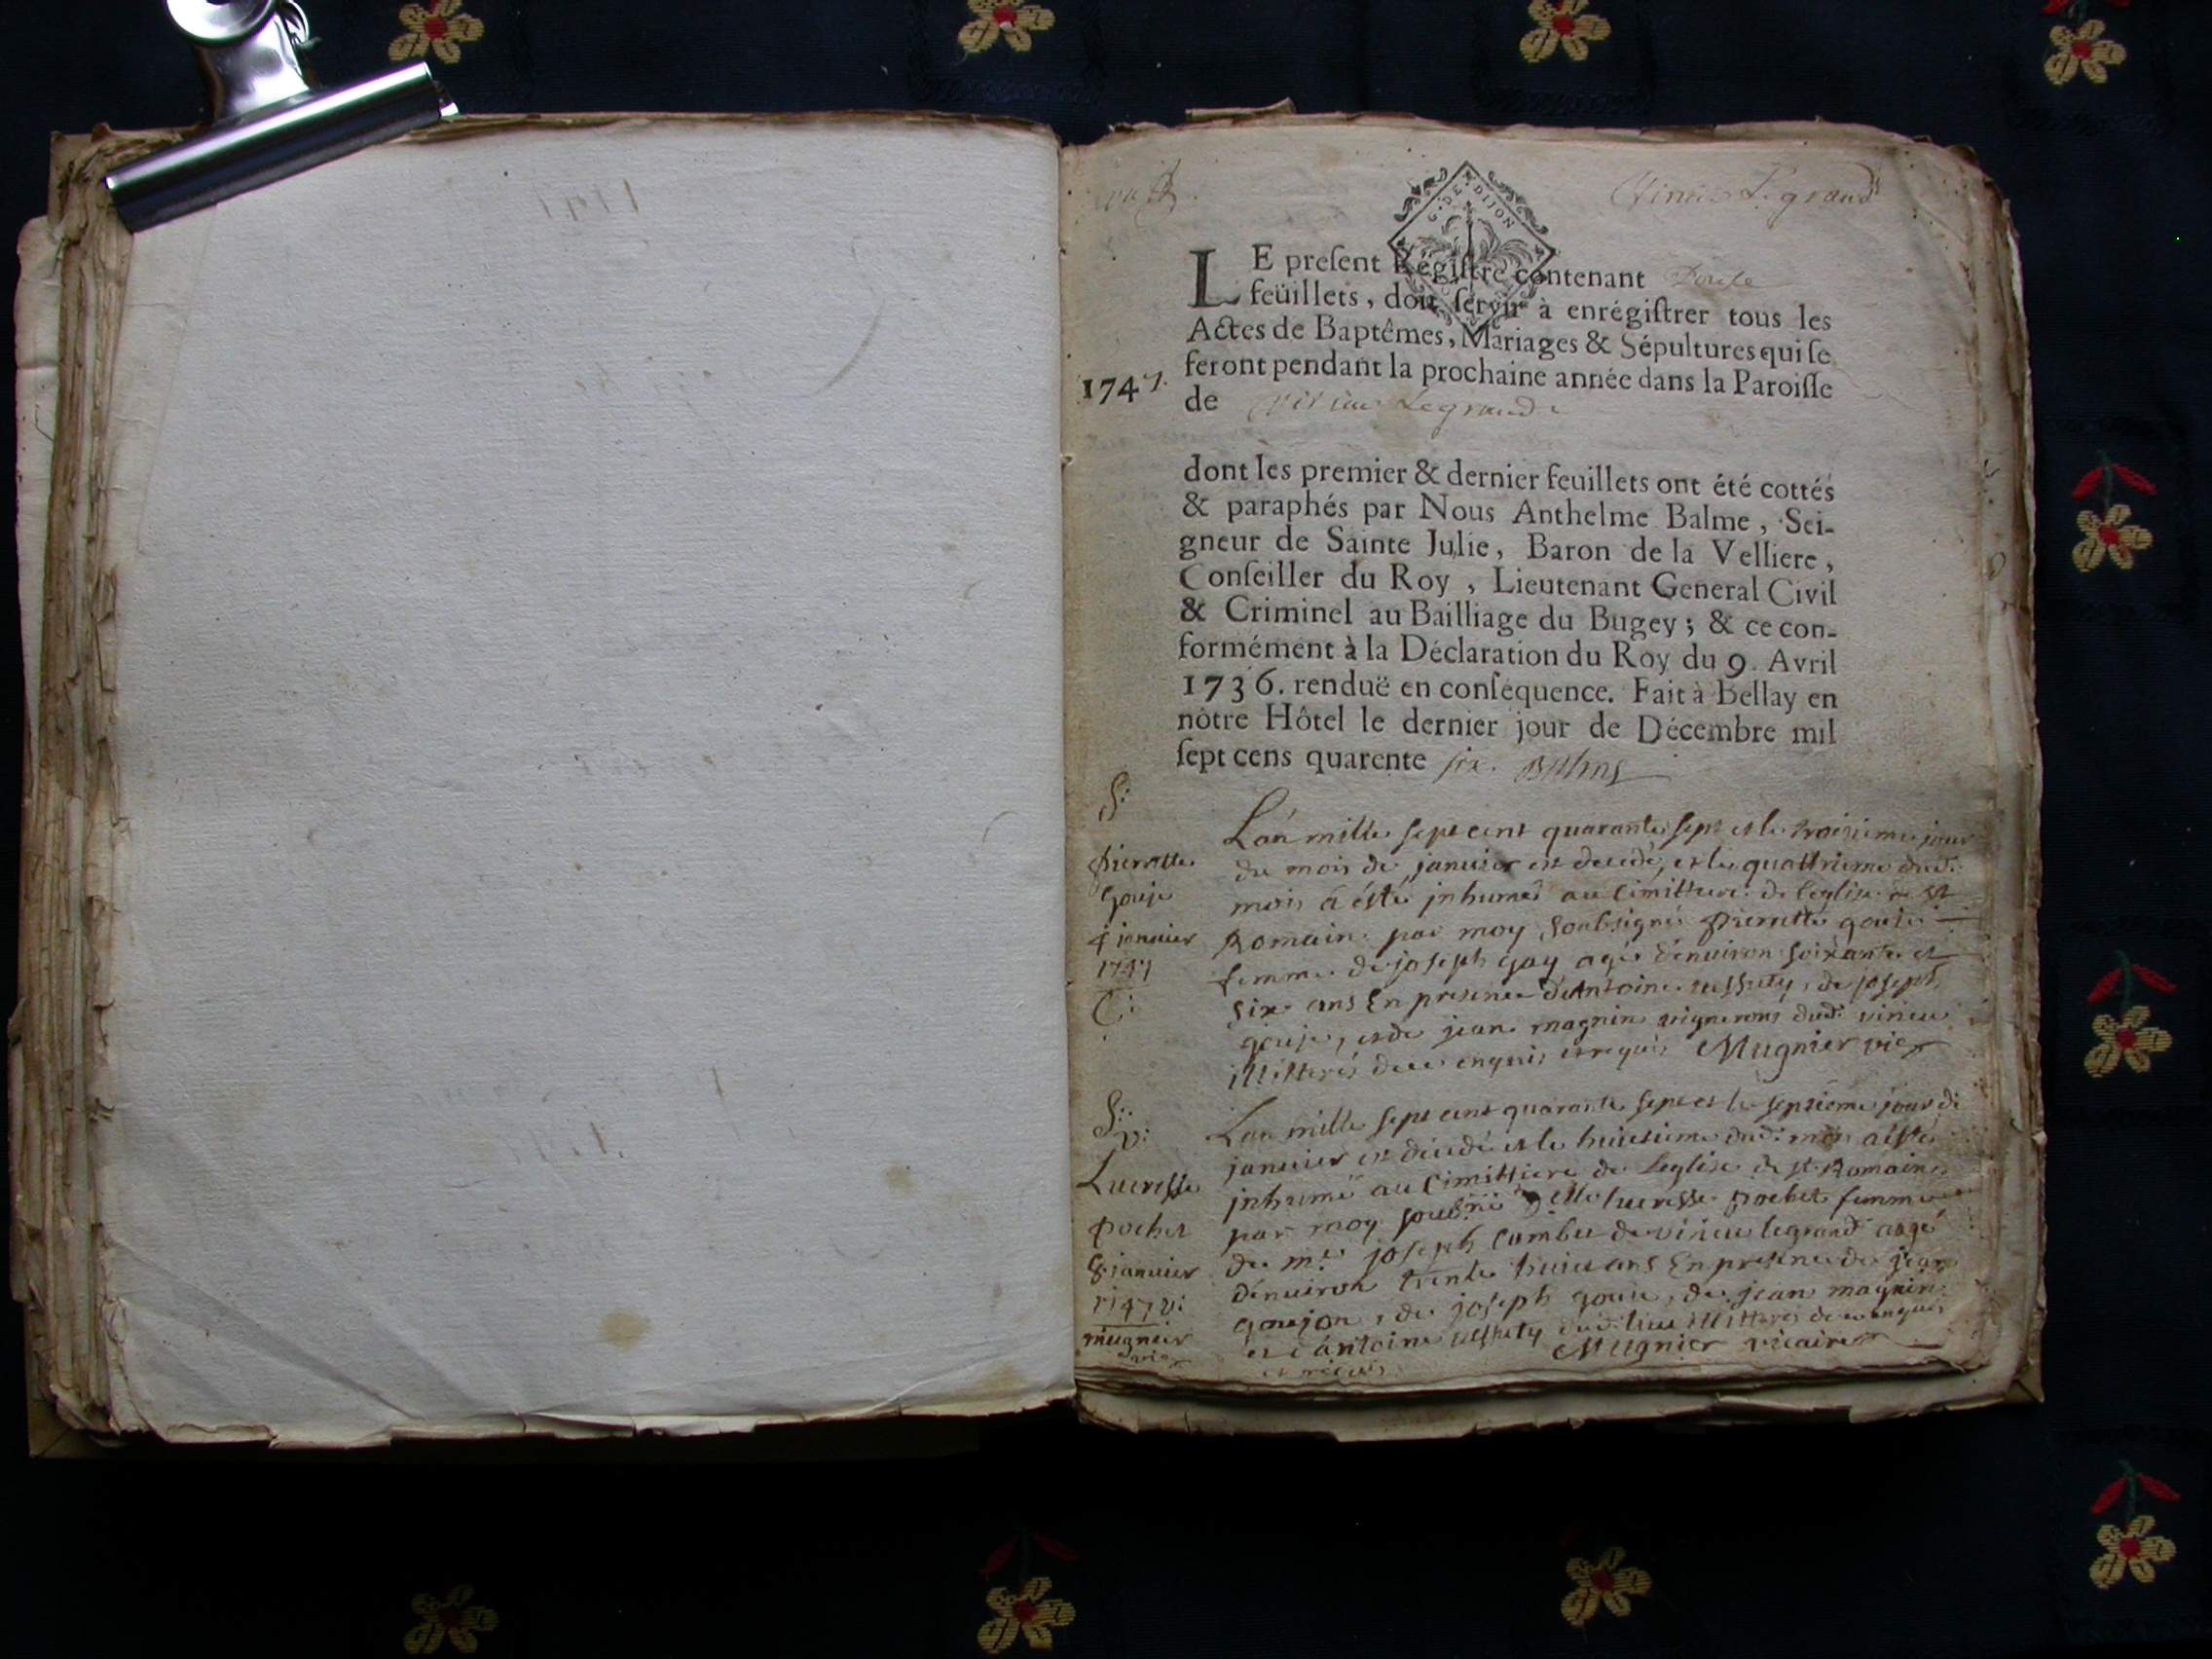 G. DE DIJON
Virieu Le grand
LE preſent Régiſtre contenant Douſe
feüillets, doit ſervir à enrégiſtrer tous les
Actes de Baptêmes, Mariages & Sépultures qui ſe
feront pendant la prochaine année dans la Paroiſſe
1747.
de Virieu Legrand
dont les premier & dernier feuillets ont été cottés
& paraphés par Nous Anthelme Balme, Sei-
gneur de Sainte Julie, Baron de la Velliere,
Conſeiller du Roy, Lieutenant General Civil
& Criminel au Bailliage du Bugey; & ce con-
formément à la Déclaration du Roy du 9. Avril
1736. renduë en conſéquence. Fait à Bellay en
nôtre Hôtel le dernier jour de Décembre mil
ſept cens quarente six.
S:
Pierrette
Gouje
4 janvier
1747
C:
L'an mille sept cent quarante sept et le troisieme jour
du mois de janvier est decedé, et le quattrieme dud:
mois a été jnhumé au cimittiere de l'eglise de St
Romain par moy soubsigné Pierrette gouje
femme de joseph gay agée d'environ soixante et
six ans En presence d'Antoine vesssuty, de joseph
gouje, et de jean magnin vignerons dud: virieu
illitterés de ce enquis et requis Mugnier vic
S:
v:
Lucresse
Pochet
8 janvier
1747
mugnier
L'an mille sept cent quarante sept et le septieme jour de
janvier est decedé et le huictieme dud: mois a été
jnhumé au cimittiere de l'eglise de st Romain
par moy soubné delle lucresse pochet femme
de me joseph cumbet de virieu legrand aagé
d'environ trente huict ans En presence de jean
goujon, de joseph gouje, de jean magnin
et d'antoine vessuty dud: lieu illitterés de ce enquis
et requis Mugnier vicaire